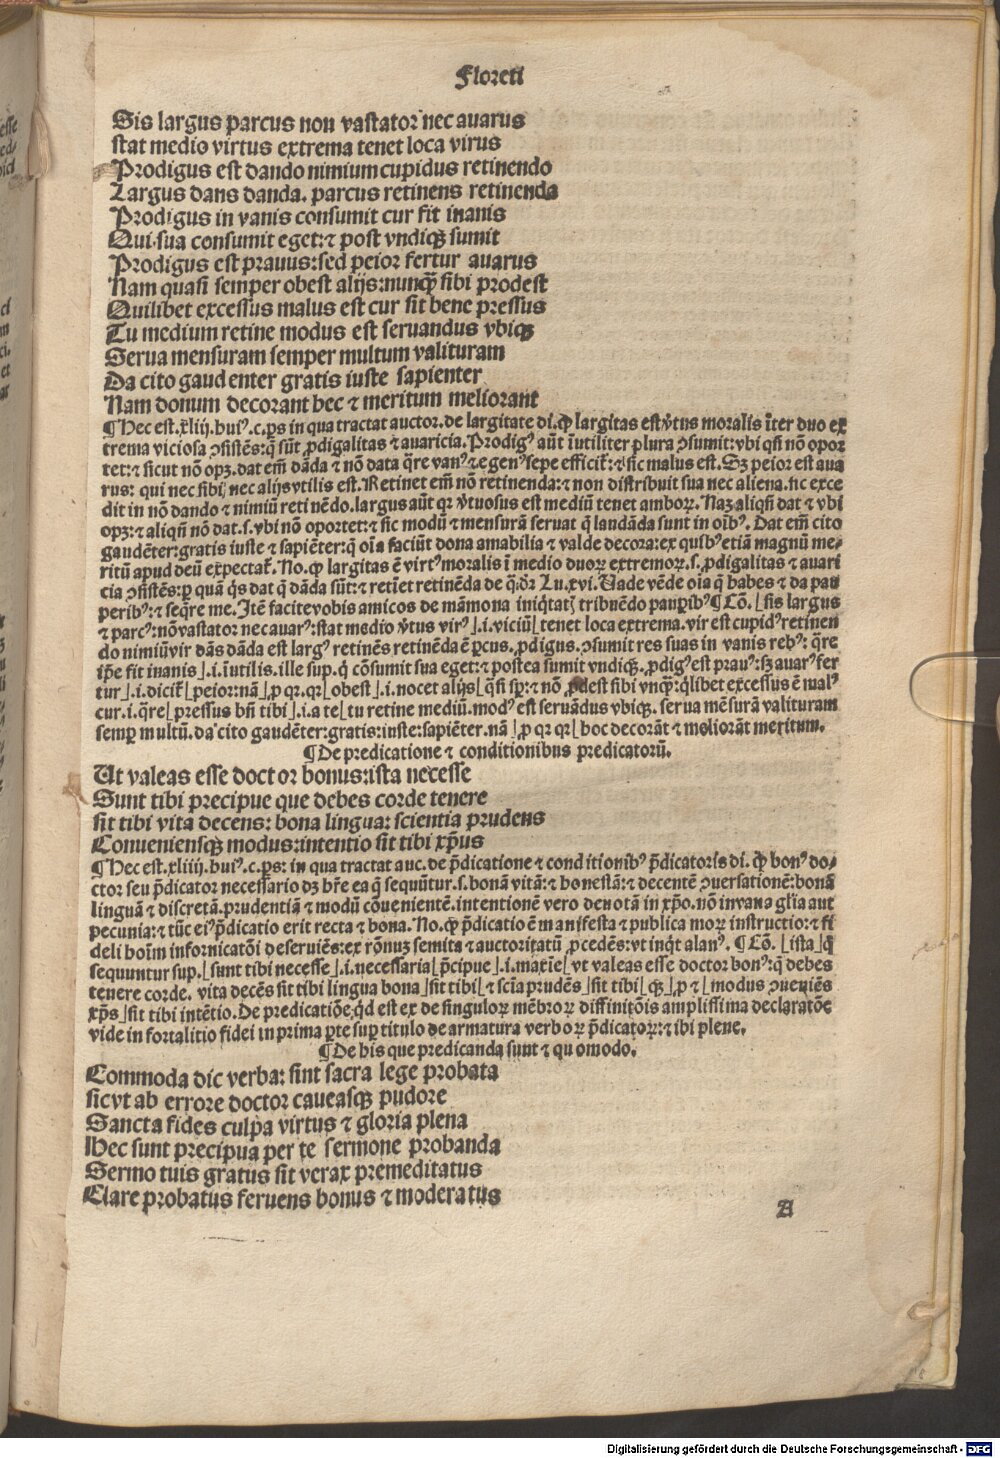 Floreti
Sis largus parcus non vastator nec auarus
stat medio virtus extrema tenet loca virus
Prodigus est dando nimium cupidus retinendo
Largus dans danda. parcus retinens retinenda
Prodigus in vanis consumit cur fit inanis
Qui sua consumit eget:⁊ post vndiqꝫ sumit
Prodigus est prauus:sed peior fertur auarus
Nam quasi semper obest alijs:nunqꝫ sibi prodest
Quilibet excessus malus est cur sit bene pressus
Tu medium retine modus est seruandus vbiqꝫ
Serua mensuram semper multum valituram
Da cito gaudenter gratis iuste sapienter
Nam donum decorant hec ⁊ meritum meliorant
¶Hec est.xliij.huiꝰ.c.ps in qua tractat auctor.de largitate di.ꝙ largitas est v̓tus moralis īter duo ex
trema viciosa ↄsistēs:q̄ sūt ꝓdigalitas ⁊ auaricia.Prodigꝰ aūt īutiliter plura ↄsumit:vbi qn̄ nō opor
tet:⁊ sicut nō opꝫ.dat em̄ dāda ⁊ nō data q̄re vanꝰ ⁊ egenꝰ sepe efficit᷑:⁊ sic malus est.Sꝫ peior est aua
rus: qui nec sibi nec alijs vtilis est.Retinet em̄ nō retinenda:⁊ non distribuit sua nec aliena.sic exce
dit in nō dando ⁊ nimiū retinēdo.largus aūt qꝛ v̓tuosus est mediū tenet amboꝝ. Naꝫ aliqn̄ dat ⁊ vbi
opꝫ:⁊ aliqn̄ nō dat.s.vbi nō oportet:⁊ sic modū ⁊ mensurā seruat q̄ laudāda sunt in oībꝰ. Dat em̄ cito
gaudēter:gratis iuste ⁊ sapiēter:q̄ oīa faciūt dona amabilia ⁊ valde decora:ex quibꝰ etiā magnū me-
ritū apud deū expectat᷑. No.ꝙ largitas ē virtꝰ moralis ī medio duoꝝ extremoꝝ.s.ꝓdigalitas ⁊ auari
cia ↄsistēs:ꝑ quā q̇s dat q̄ dāda sūt:⁊ retīet retinēda de q̇.dr̄ Lu.xvi. Uade vēde oīa q̄ habes ⁊ da pau
peribꝰ:⁊ seq̄re me. Itē facite vobis amicos de māmona iniq̇tatꝭ tribuēdo pauꝑibꝰ ¶Cō. ⌊sis largus
⁊ parcꝰ:nō vastator nec auarꝰ:stat medio v̓tus virꝰ⌋.i.viciū⌊ tenet loca extrema. vir est cupidꝰ retinen
do nimiū vir dās dāda est largꝰ retinēs retinēda ē ꝑcus.ꝓdigus.ↄsumit res suas in vanis rebꝰ: q̄re
ip̄e fit inanis⌋.i.īutilis.ille sup.q̇ cōsumit sua eget:⁊ postea sumit vndiqꝫ.ꝓdigꝰ est prauꝰ:sꝫ auarꝰ fer
tur⌋.i.dicit᷑⌊peior:nā⌋ꝓ qꝛ.qꝛ⌊obest⌋.i.nocet alijs⌊q̄si sꝑ:⁊ nō ꝓdest sibi vnqꝫ:q̇libet excessus ē malꝰ
cur.i.q̄re⌊pressus bn̄ tibi⌋.i.a te⌊tu retine mediū.modꝰ est seruādus vbiqꝫ. serua mēsurā valituram
semꝑ multū.da cito gaudēter:gratis:iuste:sapiēter.nā⌋ꝓ qꝛ qꝛ⌊hoc decorāt ⁊ meliorāt meritum.
¶De predicatione ⁊ conditionibus predicatorū.
Ut valeas esse doctor bonus:ista necesse
Sunt tibi precipue que debes corde tenere
sit tibi vita decens: bona lingua: scientia prudens
Conueniensqꝫ modus:intentio sit tibi xp̄us
¶Hec est.xliiij.huiꝰ.c.ps: in qua tractat auc.de p̄dicatione ⁊ conditionibꝰ p̄dicatoris di. ꝙ bonꝰ do-
ctor seu p̄dicator necessario dꝫ hr̄e ea q̄ sequūtur.s.bonā vitā:⁊ honestā:⁊ decentē ↄuersationē:bonā
linguā ⁊ discretā.prudentiā ⁊ modū cōuenientē.intentionē vero deuotā in xp̄o.nō in vana gl̄ia aut
pecunia:⁊ tūc eiꝰ p̄dicatio erit recta ⁊ bona. No.ꝙ p̄dicatio ē manifesta ⁊ publica moꝝ instructio:⁊ fi
deli hoīm infornicatōi deseruiēs:ex rōnuꝫ semita ⁊ auctoritatū ꝓcedēs:vt inq̇t alanꝰ. ¶Cō. ⌊ista⌋q̄
sequuntur sup.⌊sunt tibi necesse⌋.i.necessaria⌊p̄cipue⌋.i.maxīe⌊vt valeas esse doctor bonꝰ:q̄ debes
tenere corde. vita decēs sit tibi lingua bona⌋sit tibi⌊⁊ scīa prudēs⌋sit tibi⌊qꝫ⌋ꝓ ⁊⌊modus ↄueniēs
xp̄s⌋sit tibi intētio. De predicatiōe:q̇d est ex de singuloꝝ mēbroꝝ diffinitōis amplissima declaratōe
vide in fortalitio fidei in prima ꝑte suꝑ titulo de armatura verboꝝ p̄dicatoꝝ:⁊ ibi plene.
¶De his que predicanda sunt ⁊ quomodo.
Commoda dic verba: sint sacra lege probata
sicvt ab errore doctor caueasqꝫ pudore
Sancta fides culpa virtus ⁊ gloria plena
Hec sunt precipua per te sermone probanda
Sermo tuis gratus sit verax premeditatus
Clare probatus feruens bonus ⁊ moderatus
A
Digitalisierung gefördert durch die Deutsche Forschungsgemeinschaft - DFG